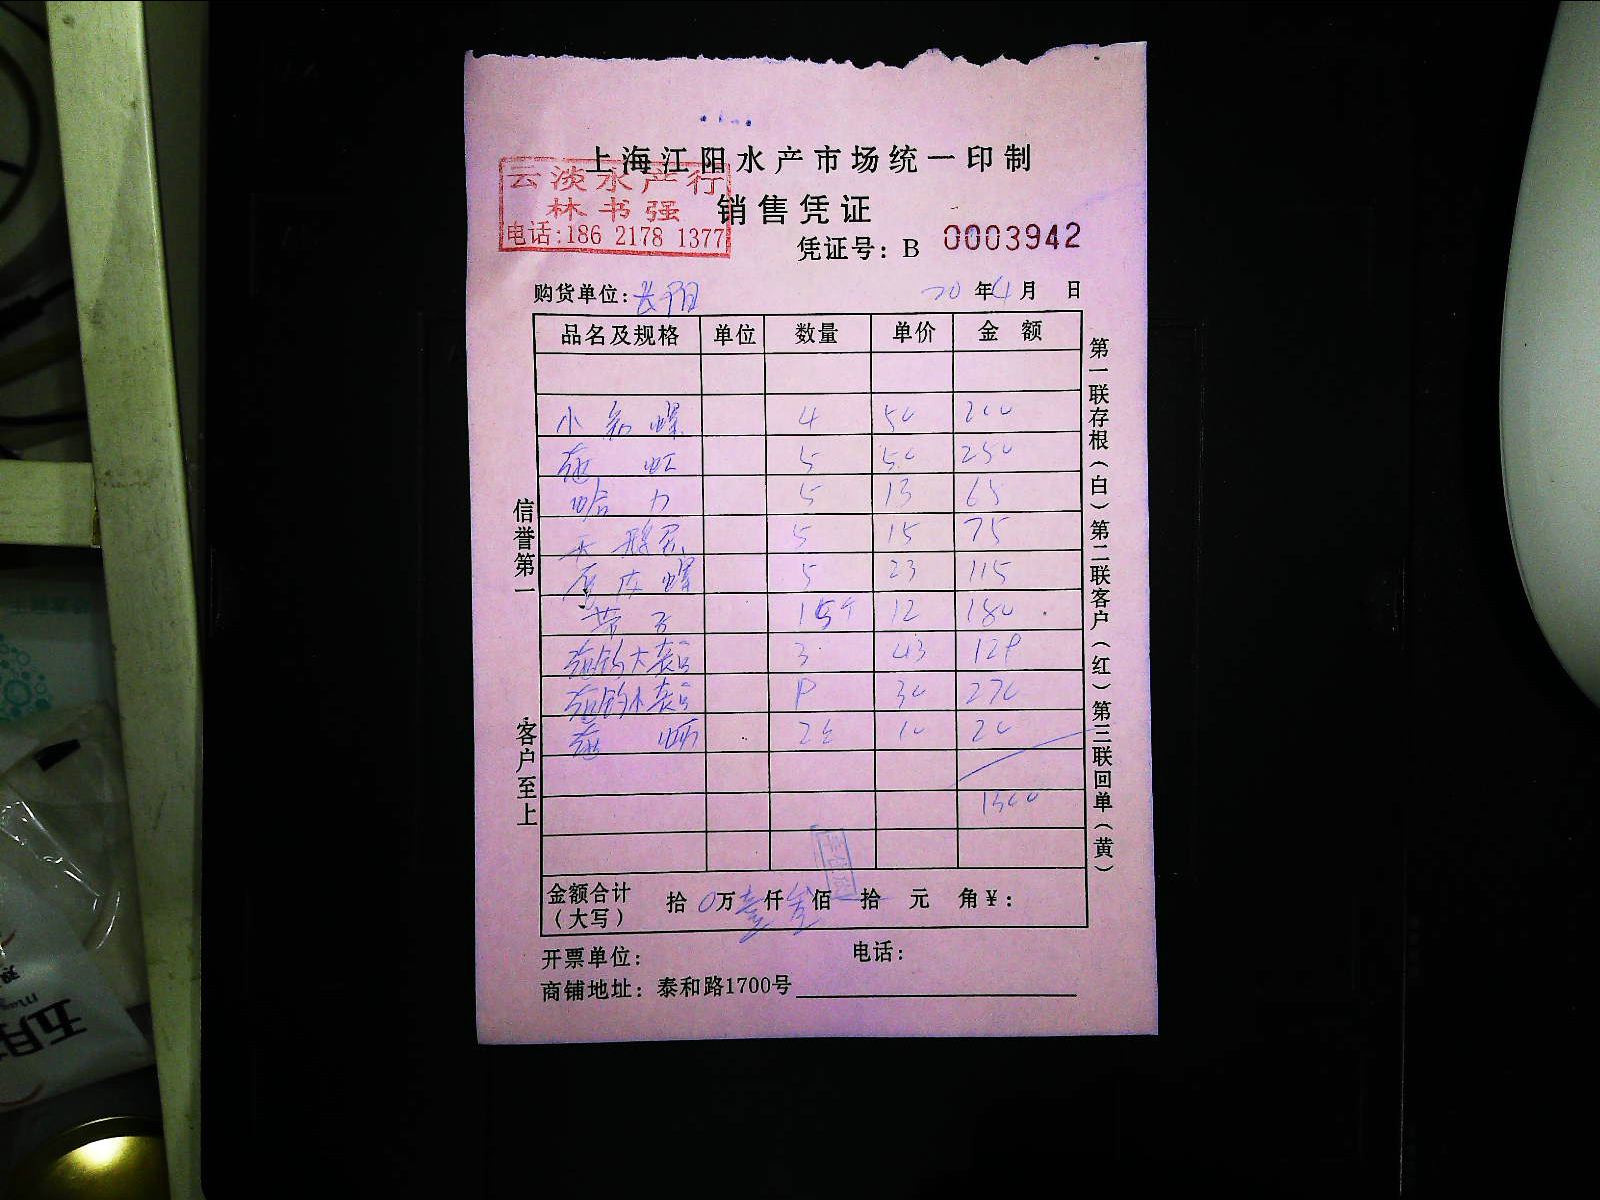 上海江阳水产市场统一印制
云淡水产行
林书强
电话:186 2178 1377
销售凭证
凭证号: B 0003942
购货单位: 长阳 20年4月 日
品名及规格 单位 数量 单价 金额
小 螺 4 50 200
虹 5 50 250
哈 力 5 13 65
5 15 75
皮 螺 5 23 115
带 子 15个 12 180
大 3 43 129
小 9 30 270
10 20
1300
金额合计（大写） 拾 0万壹仟叁佰 拾 元 角¥:
开票单位: 电话:
商铺地址: 泰和路1700号
信誉第一 客户至上
第一联存根（白）第二联客户（红）第三联回单（黄）
五月